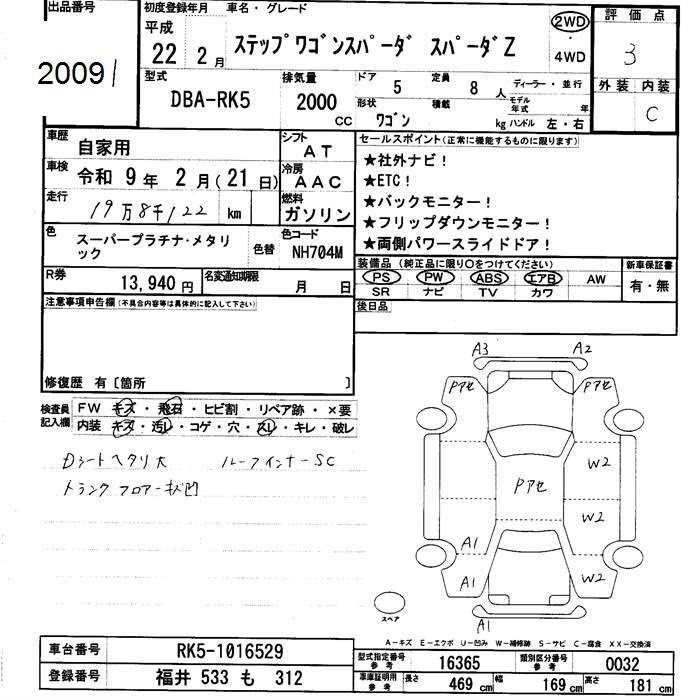 出品番号
2009/
初度登録年月 車名・グレード
平成
22 2月
ステップワゴンスパーダ スパーダZ
2WD
・
4WD
評価点
3
外装 内装
C
型式
DBA-RK5
排気量
2000 CC
ドア 5
定員 8 人
ディーラー・並行
形状 ワゴン
積載 kg
モデル年式 年
ハンドル 左・右
車歴 自家用
シフト AT
車検 令和 9年 2月(21日)
冷房 AAC
走行 19万8千122 km
燃料 ガソリン
色 スーパープラチナ・メタリック
色替
色コード NH704M
R券 13,940円
名変通知期限 月 日
セールスポイント(正常に機能するものに限ります)
★社外ナビ!
★ETC!
★バックモニター!
★フリップダウンモニター!
★両側パワースライドドア!
装備品(純正品に限り○をつけてください)
PS PW ABS エアB AW
SR ナビ TV カワ
新車保証書
有・無
後日品
注意事項申告欄(不具合内容等は具体的に記入して下さい)
修復歴 有〔箇所 〕
検査員記入欄
FW キズ・飛石・ヒビ割・リペア跡・×要
内装 キズ・汚レ・コゲ・穴・スレ・キレ・破レ
Dシートヘタリ大 ルーフインナーSC
トランクフロアーキズ凹
A3 A2
Pアセ Pアセ
W2
Pアセ
W2
A1
A1 W2
A1
スペア
A-キズ E-エクボ U-凹み W-補修跡 S-サビ C-腐食 XX-交換済
車台番号 RK5-1016529
登録番号 福井 533 も 312
型式指定番号参考 16365
類別区分番号参考 0032
車庫証明用参考 長さ 469 cm 幅 169 cm 高さ 181 cm